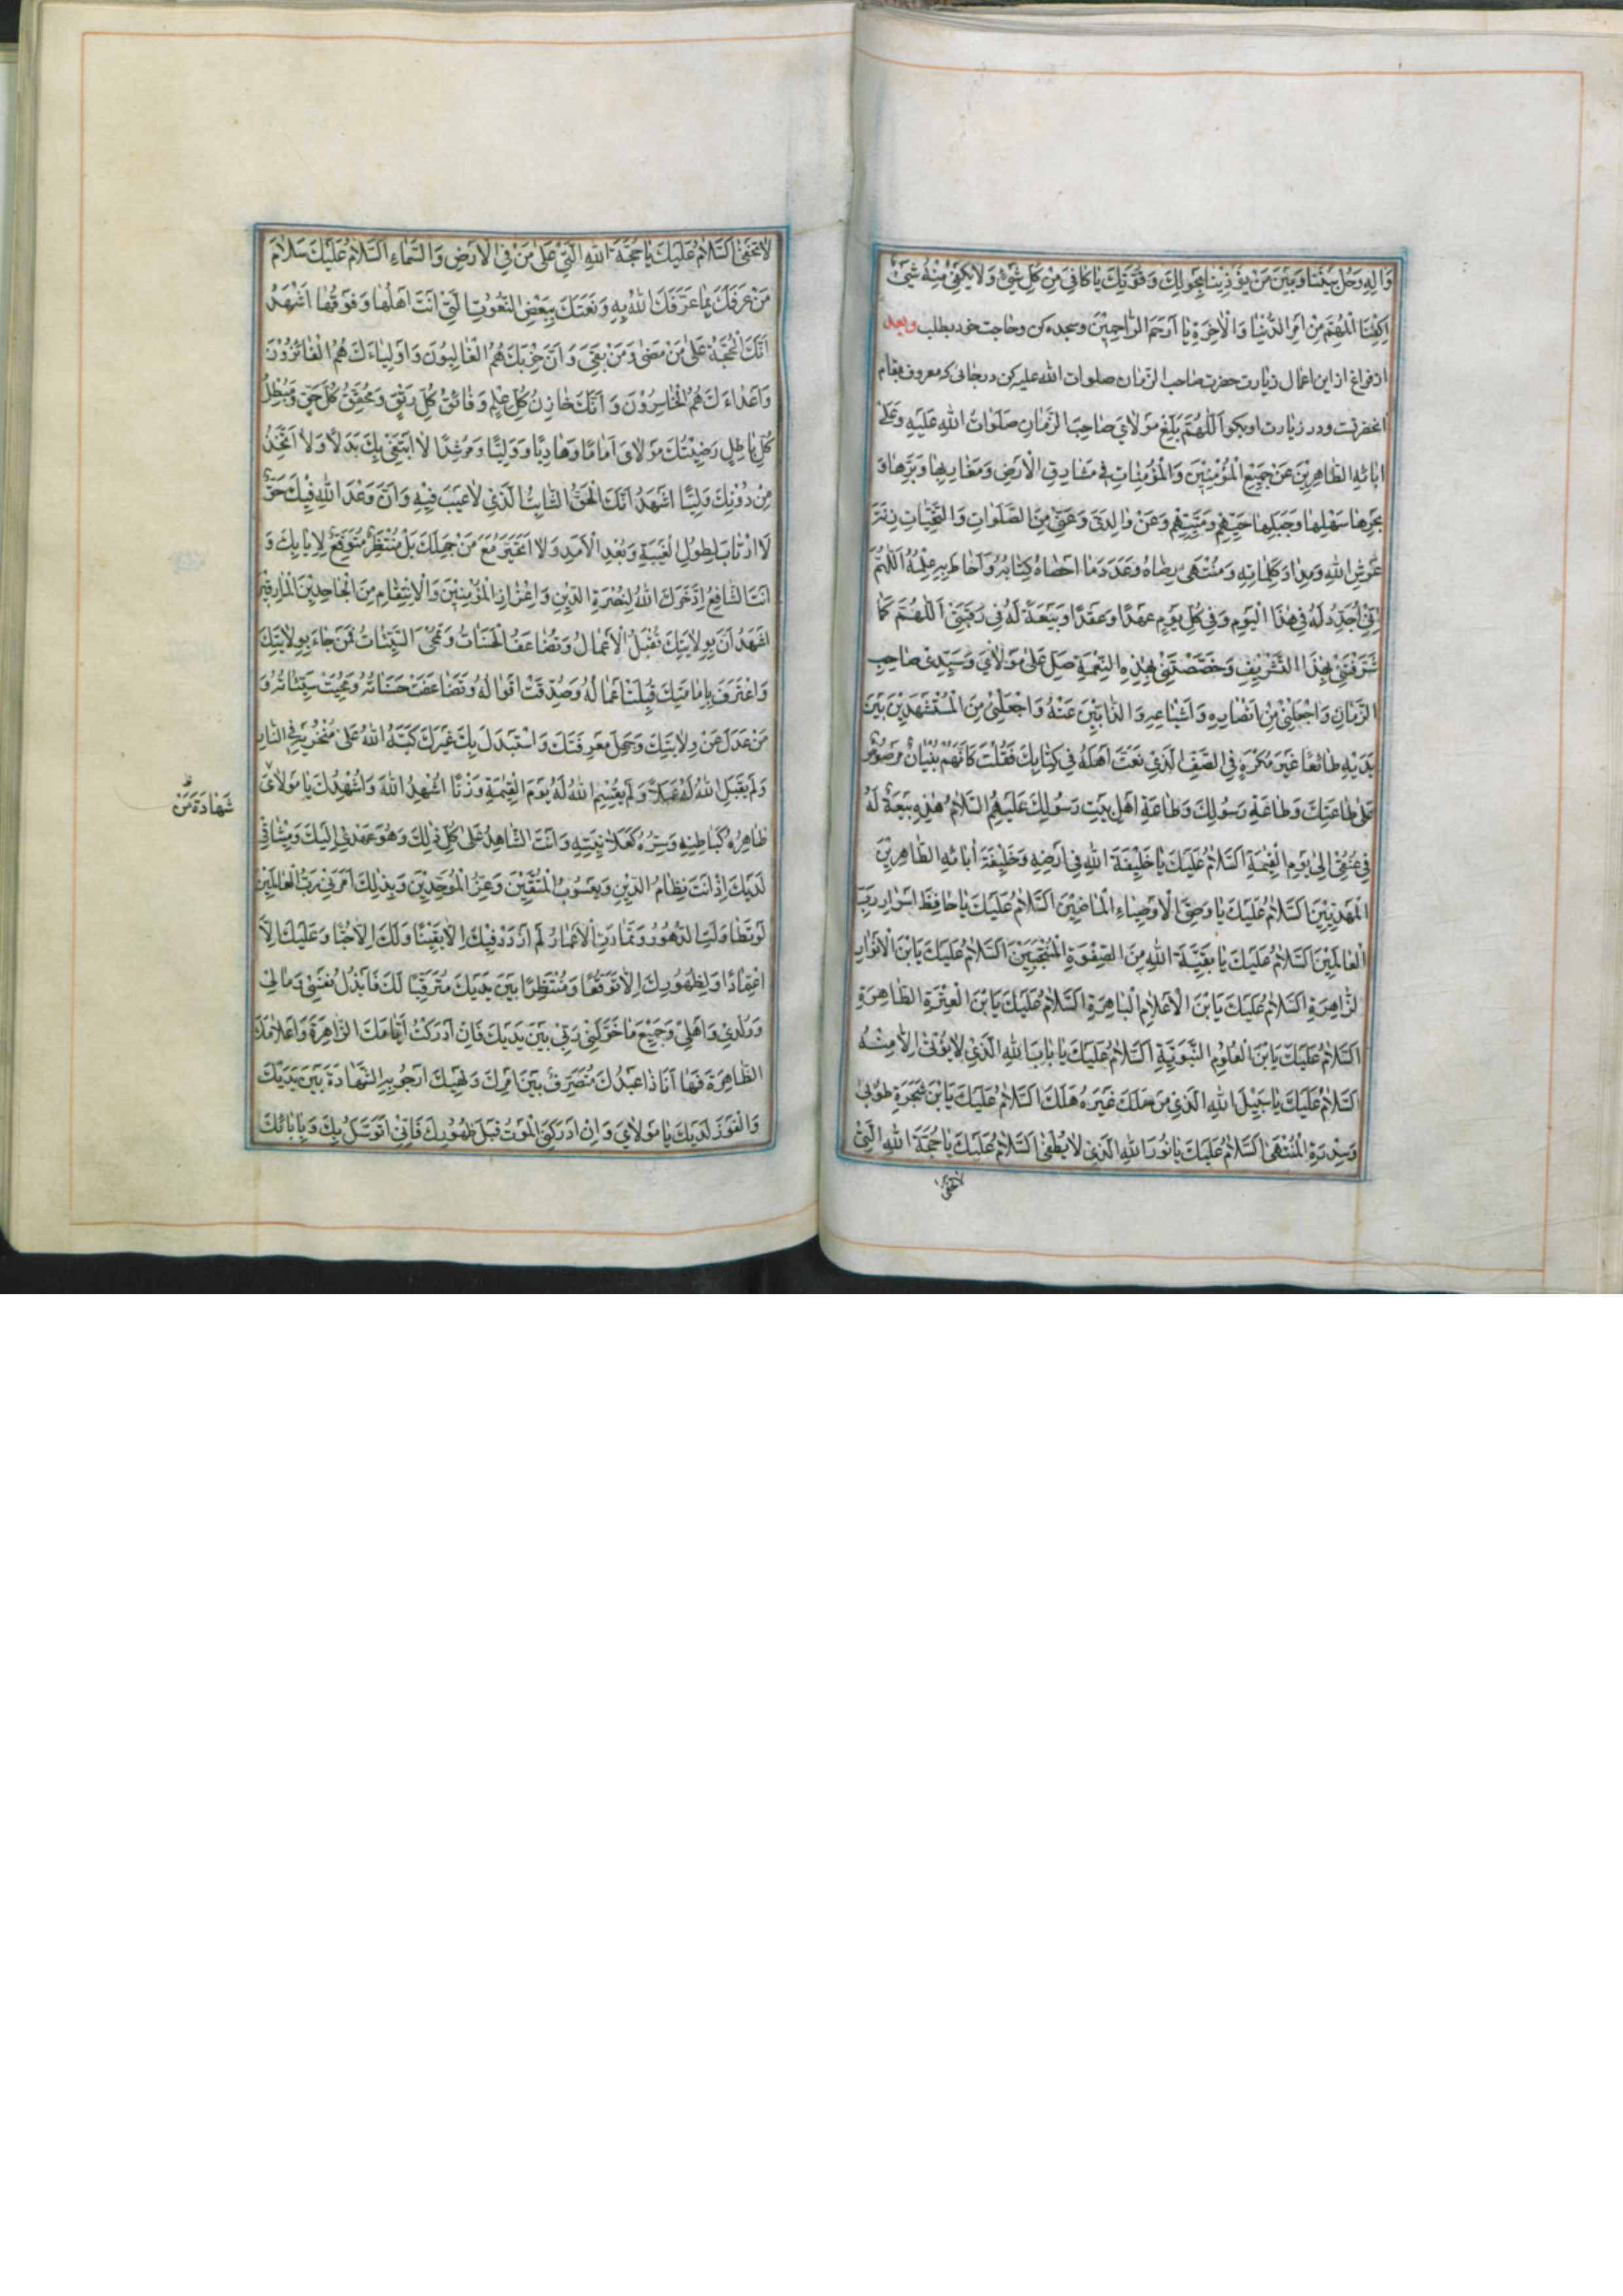 وَالِهِ وَحُلْ بَيْنَنا وَبَيْنَ مَنْ يُؤْذِينا بِحَوْلِكَ وَقُوَّتِكَ يا كافِيَ مِنْ كُلِّ شَيْءٍ وَلا يَكْفِي مِنْهُ شَيْءٌ
اِكْفِنَا الْمُهِمَّ مِنْ اَمْرِ الدُّنْيا وَالْاخِرَةِ يا اَرْحَمَ الرّاحِمِيْنَ وسجده کن وحاجت خود بطلب وبعد
از فراغ از این اعمال زیارت حضرت صاحب الزمان صلوات الله علیه کن در جائی که معروف بمقام
انحضرتست ودر زیارت او بکو اَللّهُمَّ بَلِّغْ مَوْلايَ صاحِبَ الزَّمانِ صَلَواتُ اللهِ عَلَيْهِ وَعَلى
ابائِهِ الطّاهِرِيْنَ عَنْ جَمِيْعِ الْمُؤْمِنِيْنَ وَالْمُؤْمِناتِ فِي مَشارِقِ الْاَرْضِ وَمَغارِبِها وَبَرِّها وَ
بَحْرِها سَهْلِها وَجَبَلِها حَيِّهِمْ وَمَيِّتِهِمْ وَعَنْ والِدَيَّ وَعَنِّي مِنَ الصَّلَواتِ وَالتَّحِيّاتِ زِنَةَ
عَرْشِ اللهِ وَمِدادَ كَلِماتِهِ وَمُنْتَهى رِضاهُ وَعَدَدَ ما اَحْصاهُ كِتابُهُ وَاَحاطَ بِهِ عِلْمُهُ اَللّهُمَّ
اِنِّي اُجَدِّدُ لَهُ فِي هذَا الْيَوْمِ وَفِي كُلِّ يَوْمٍ عَهْدًا وَعَقْدًا وَبَيْعَةً لَهُ فِي رَقَبَتِي اَللّهُمَّ كَما
شَرَّفْتَنِي بِهذَا التَّشْرِيفِ وَخَصَّصْتَنِي بِهذِهِ النِّعْمَةِ صَلِّ عَلى مَوْلايَ وَسَيِّدِي صاحِبِ
الزَّمانِ وَاجْعَلْنِي مِنْ اَنْصارِهِ وَاَشْياعِهِ وَالذّابِّيْنَ عَنْهُ وَاجْعَلْنِي مِنَ الْمُسْتَشْهَدِيْنَ بَيْنَ
يَدَيْهِ طائِعًا غَيْرَ مُكْرَهٍ فِي الصَّفِّ الَّذِي نَعَتَّ اَهْلَهُ فِي كِتابِكَ فَقُلْتَ كَاَنَّهُمْ بُنْيانٌ مَرْصُوصٌ
عَلى طاعَتِكَ وَطاعَةِ رَسُولِكَ وَطاعَةِ اَهْلِ بَيْتِ رَسُولِكَ عَلَيْهِمُ السَّلامُ هذِهِ بَيْعَةٌ لَهُ
فِي عُنُقِي اِلى يَوْمِ الْقِيمَةِ اَلسَّلامُ عَلَيْكَ يا خَلِيفَةَ اللهِ فِي اَرْضِهِ وَخَلِيفَةَ أبائِهِ الطّاهِرِيْنَ
الْمَهْدِيِّيْنَ اَلسَّلامُ عَلَيْكَ يا وَصِيَّ الْاَوْصِياءِ الْماضِيْنَ اَلسَّلامُ عَلَيْكَ يا حافِظَ اَسْرارِ رَبِّ
الْعالَمِيْنَ اَلسَّلامُ عَلَيْكَ يا بَقِيَّةَ اللهِ مِنَ الصِّفْوَةِ الْمُنْتَجَبِيْنَ اَلسَّلامُ عَلَيْكَ يَابْنَ الْاَنْوارِ
الزّاهِرَةِ اَلسَّلامُ عَلَيْكَ يَابْنَ الْاَعْلامِ الْباهِرَةِ اَلسَّلامُ عَلَيْكَ يَابْنَ الْعِتْرَةِ الطّاهِرَةِ
اَلسَّلامُ عَلَيْكَ يَابْنَ الْعُلُومِ النَّبَوِيَّةِ اَلسَّلامُ عَلَيْكَ يا بابَ اللهِ الَّذِي لا يُؤْتى اِلّا مِنْهُ
اَلسَّلامُ عَلَيْكَ يا سَبِيْلَ اللهِ الَّذِي مَنْ سَلَكَ غَيْرَهُ هَلَكَ اَلسَّلامُ عَلَيْكَ يَابْنَ شَجَرَةِ طُوْبى
وَسِدْرَةِ الْمُنْتَهى اَلسَّلامُ عَلَيْكَ يا نُورَ اللهِ الَّذِي لا يُطْفى اَلسَّلامُ عَلَيْكَ يا حُجَّةَ اللهِ الَّتِي
لا تخفى
لا تَخْفى اَلسَّلامُ عَلَيْكَ يا حُجَّةَ اللهِ الَّتِي عَلى مَنْ فِي الْاَرْضِ وَالسَّماءِ اَلسَّلامُ عَلَيْكَ سَلامَ
مَنْ عَرَفَكَ بِما عَرَّفَكَ اللهُ بِهِ وَنَعَتَكَ بِبَعْضِ النُّعُوتِ الَّتِي اَنْتَ اَهْلُها وَفَوْقُها اَشْهَدُ
اَنَّكَ الْحُجَّةُ عَلى مَنْ مَضى وَمَنْ بَقِيَ وَاَنَّ حِزْبَكَ هُمُ الْغالِبُونَ وَاَوْلِياءَكَ هُمُ الْفائِزُوْنَ
وَاَعْداءَكَ هُمُ الْخاسِرُوْنَ وَاَنَّكَ خازِنُ كُلِّ عِلْمٍ وَفاتِقُ كُلِّ رَتْقٍ وَمُحَقِّقُ كُلِّ حَقٍّ وَمُبْطِلُ
كُلِّ باطِلٍ رَضِيْتُكَ مَوْلايَ اِمامًا وَهادِيًا وَوَلِيًّا وَمُرْشِدًا لا اَبْتَغِي بِكَ بَدَلًا وَلا اَتَّخِذُ
مِنْ دُوْنِكَ وَلِيًّا اَشْهَدُ اَنَّكَ الْحَقُّ الثّابِتُ الَّذِي لا عَيْبَ فِيْهِ وَاَنَّ وَعْدَ اللهِ فِيْكَ حَقٌّ
لا اَرْتابُ لِطُولِ الْغَيْبَةِ وَبُعْدِ الْاَمَدِ وَلا اَتَحَيَّرُ مَعَ مَنْ جَهِلَكَ بَلْ مُنْتَظِرٌ مُتَوَقِّعٌ لِاَيّامِكَ وَ
اَنْتَ الشّافِعُ اِدَّخَرَكَ اللهُ لِنُصْرَةِ الدِّيْنِ وَاِعْزازِ الْمُؤْمِنِيْنَ وَالْاِنْتِقامِ مِنَ الْجاحِدِيْنَ الْمارِقِيْنَ
اَشْهَدُ اَنَّ بِوِلايَتِكَ تُقْبَلُ الْاَعْمالُ وَتُضاعَفُ الْحَسَناتُ وَتُمْحَى السَّيِّئاتُ فَمَنْ جاءَ بِوِلايَتِكَ
وَاعْتَرَفَ بِاِمامَتِكَ قُبِلَتْ اَعْمالُهُ وَصُدِّقَتْ اَقْوالُهُ وَتَضاعَفَتْ حَسَناتُهُ وَمُحِيَتْ سَيِّئاتُهُ وَ
مَنْ عَدَلَ عَنْ وِلايَتِكَ وَجَهِلَ مَعْرِفَتَكَ وَاسْتَبْدَلَ بِكَ غَيْرَكَ كَبَّهُ اللهُ عَلى مَنْخَرِهِ فِي النّارِ
وَلَمْ يَقْبَلِ اللهُ لَهُ عَمَلًا وَلَمْ يُقِمِ اللهُ لَهُ يَوْمَ الْقِيمَةِ وَزْنًا اُشْهِدُ اللهَ وَاُشْهِدُكَ يا مَوْلايَ
شَهادَةَ مَنْ
ظاهِرُهُ كَباطِنِهِ وَسِرُّهُ كَعَلانِيَتِهِ وَاَنْتَ الشّاهِدُ عَلى كُلِّ ذلِكَ وَهُوَ عَهْدِي اِلَيْكَ وَمِيْثاقِي
لَدَيْكَ اِذْ اَنْتَ نِظامُ الدِّيْنِ وَيَعْسُوْبُ الْمُتَّقِيْنَ وَعِزُّ الْمُوَحِّدِيْنَ وَبِذلِكَ اَمَرَنِي رَبُّ الْعالَمِيْنَ
لَوْ تَطاوَلَتِ الدُّهُورُ وَتَمادَتِ الْاَعْمارُ لَمْ اَزْدَدْ فِيْكَ اِلّا يَقِيْنًا وَلَكَ اِلّا حُبًّا وَعَلَيْكَ اِلَّا
اعْتِمادًا وَلِظُهُورِكَ اِلّا تَوَقُّعًا وَمُنْتَظِرًا بَيْنَ يَدَيْكَ مُتَرَقِّبًا لَكَ فَاَبْذُلُ نَفْسِي وَمالِي
وَوَلَدِي وَاَهْلِي وَجَمِيْعَ ما خَوَّلَنِي رَبِّي بَيْنَ يَدَيْكَ فَاِنْ اَدْرَكْتُ اَيّامَكَ الزّاهِرَةَ وَاَعْلامَكَ
الظّاهِرَةَ فَها اَنَا ذا عَبْدُكَ مُتَصَرِّفٌ بَيْنَ اَمْرِكَ وَنَهْيِكَ اَرْجُو بِهِ الشَّهادَةَ بَيْنَ يَدَيْكَ
وَالْفَوْزَ لَدَيْكَ يا مَوْلايَ وَاِنْ اَدْرَكَنِيَ الْمَوْتُ قَبْلَ ظُهُورِكَ فَاِنِّي اَتَوَسَّلُ بِكَ وَبِابائِكَ